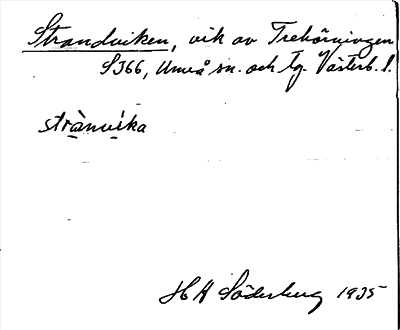 Strandviken, vik av Trehörningen
SJ66, Umeå sn. och tg. Västerb. l.
strànvíka
H H Söderberg 1935